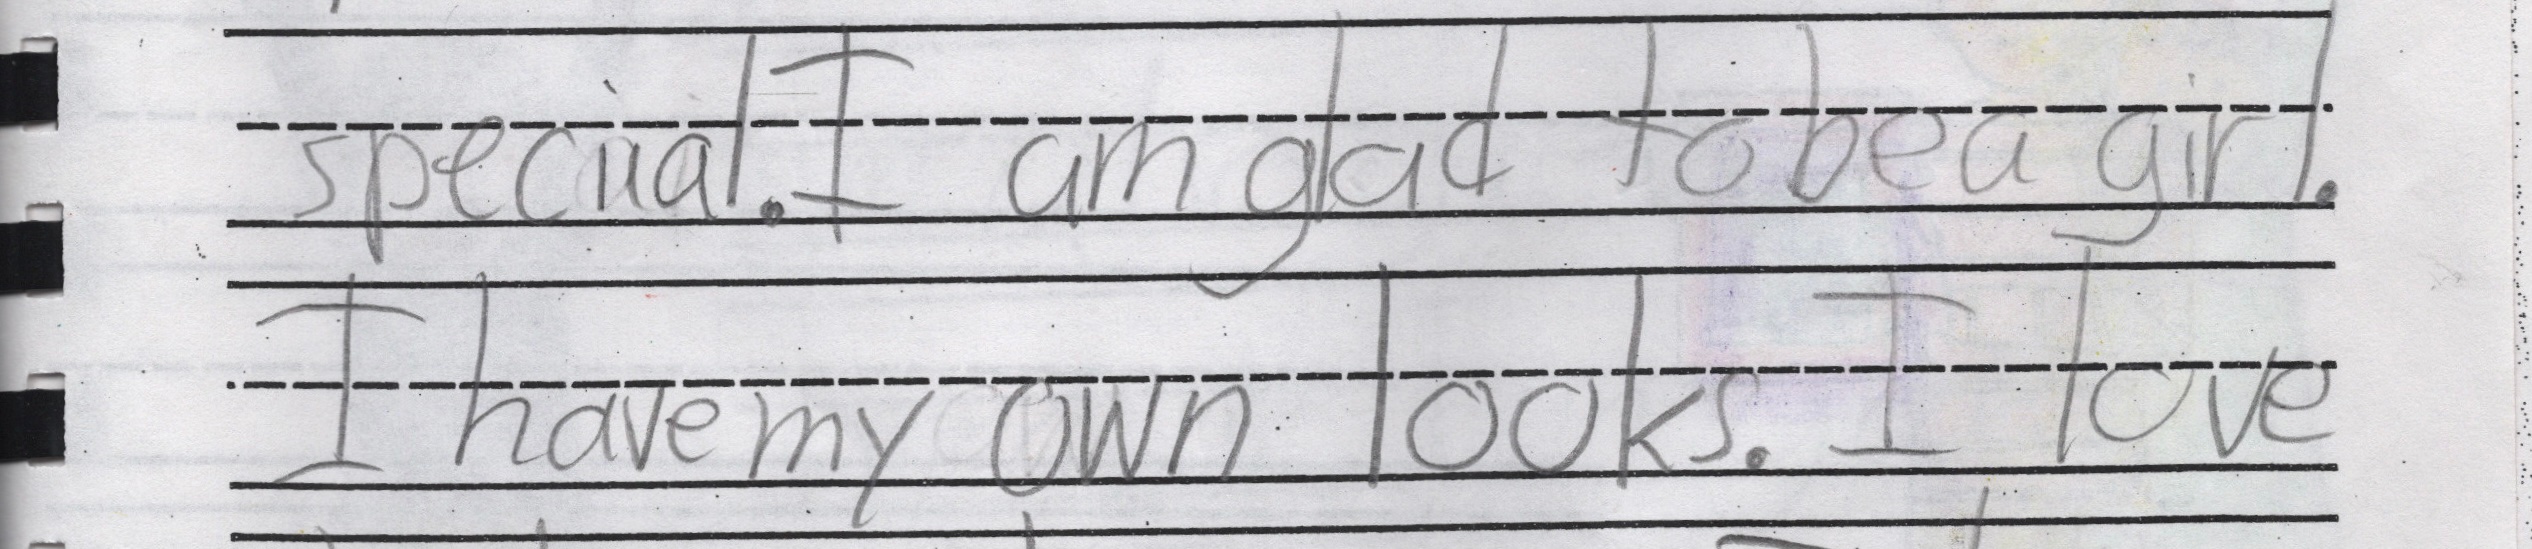 special. I am glad to be a girl.
I have my own looks. I love